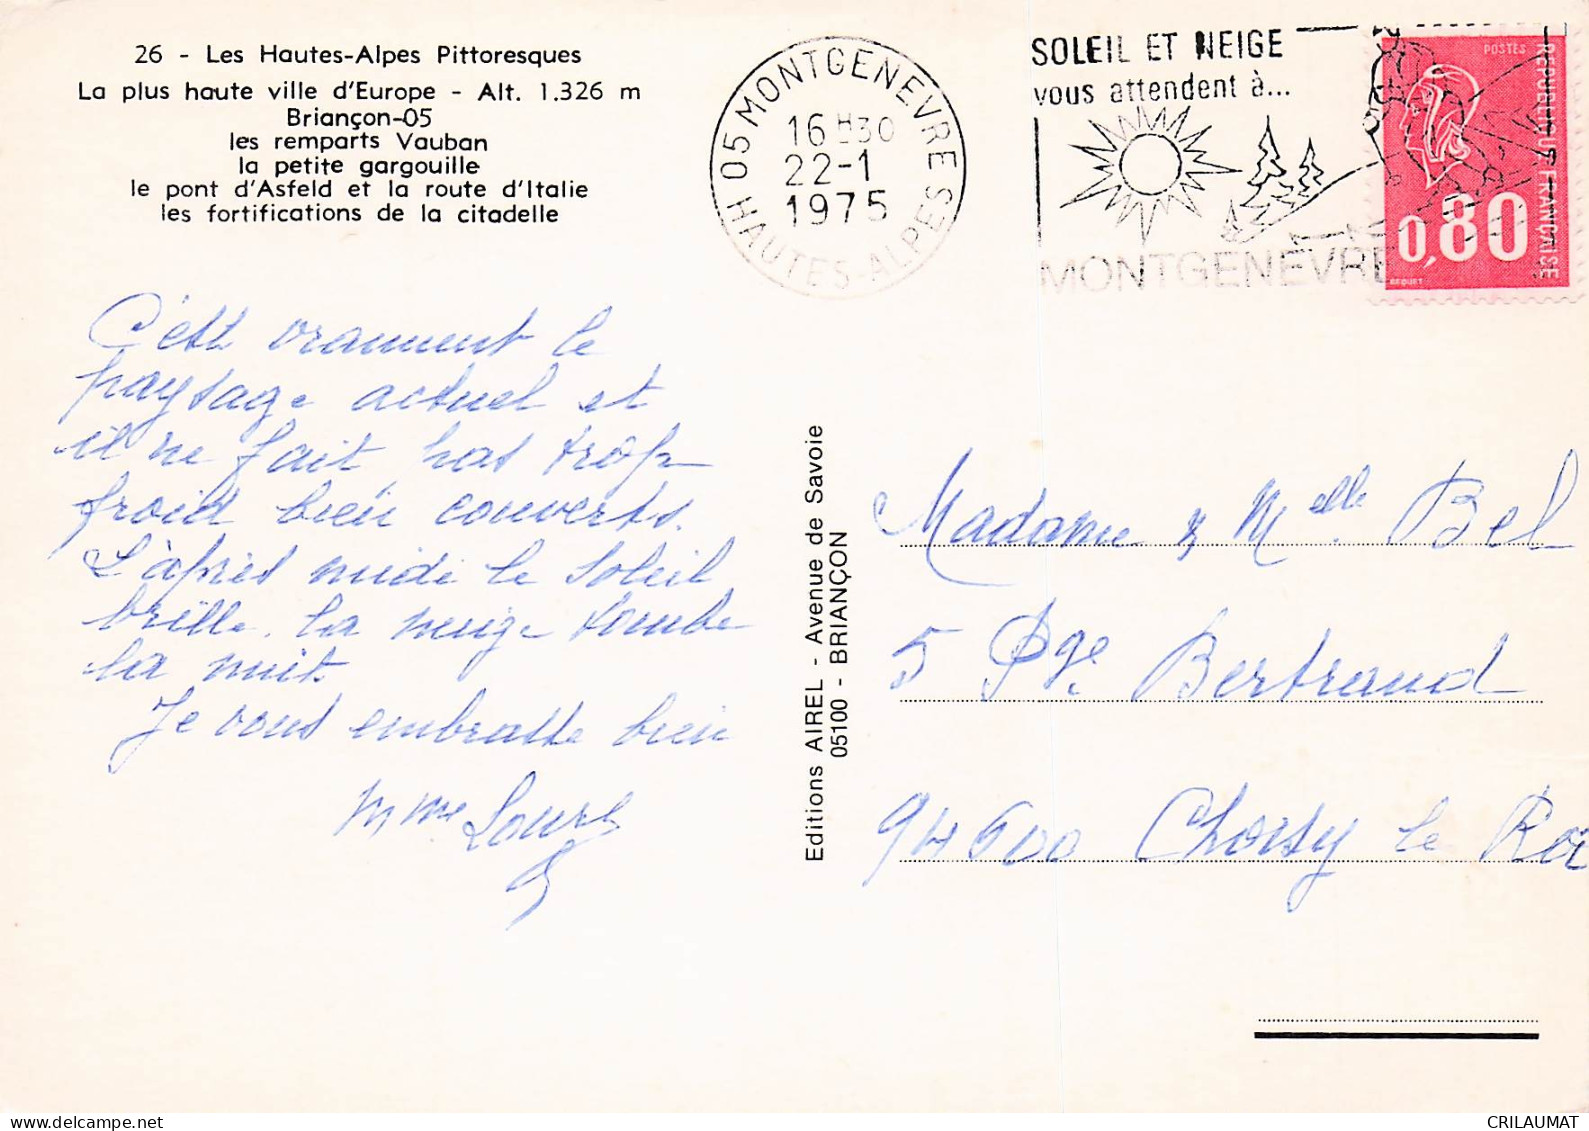 26 - Les Hautes-Alpes Pittoresques
La plus haute ville d'Europe - Alt. 1.326 m
Briançon-05
les remparts Vauban
la petite gargouille
le pont d'Asfeld et la route d'Italie
les fortifications de la citadelle
05 MONTGENEVRE
16 H 30
22-1
1975
HAUTES-ALPES
SOLEIL ET NEIGE
vous attendent à...
MONTGENEVRE
POSTES
REPUBLIQUE FRANÇAISE
0,80
BEQUET
C'est vraiment le
paysage actuel et
il ne fait pas trop
froid bien couverts.
L'après midi le soleil
brille. la neige tombe
la nuit
Je vous embrasse bien
Mme
Editions AIREL - Avenue de Savoie
05100 - BRIANÇON
Madame & Melle. Bel
5 Pge Bertrand
94600 Choisy le Roi
CRILAUMAT